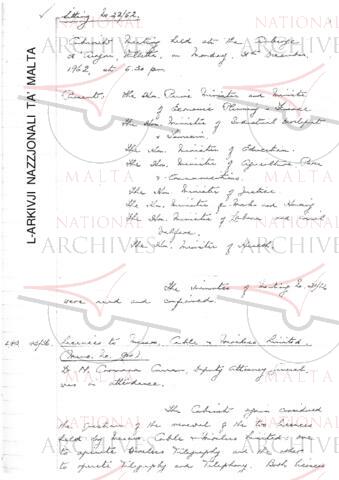 Sitting No 22/62.
Cabinet Meeting held at the Auberge
d'Aragon, Valletta, on Monday, December,
1962, at 5.30 pm
Present: The Hon. Prime Minister and Minister
of Economic Planning & Finance
The Hon. Minister of Industrial Development
& Tourism.
The Hon. Minister of Education.
The Hon. Minister of Agriculture Power
& Communications.
The Hon. Minister of Justice.
The Hon. Minister for Works and Housing
The Hon. Minister of Labour and Social
Welfare.
The Hon. Minister of Health.
The Minutes of Meeting No. 21/62
were read and confirmed.
Licences to Messrs. Cable & Wireless Limited.
Dr. M. Caruana Curran, Deputy Attorney General
was in attendance.
The Cabinet again considered
the question of the renewal of the two licences
held by Messrs. Cable & Wireless Limited, one
to operate Wireless Telegraphy and the other
to operate Telegraphy and Telephony. Both licences
L-ARKIVJI NAZZJONALI TA' MALTA
NATIONAL
ARCHIVES
MALTA